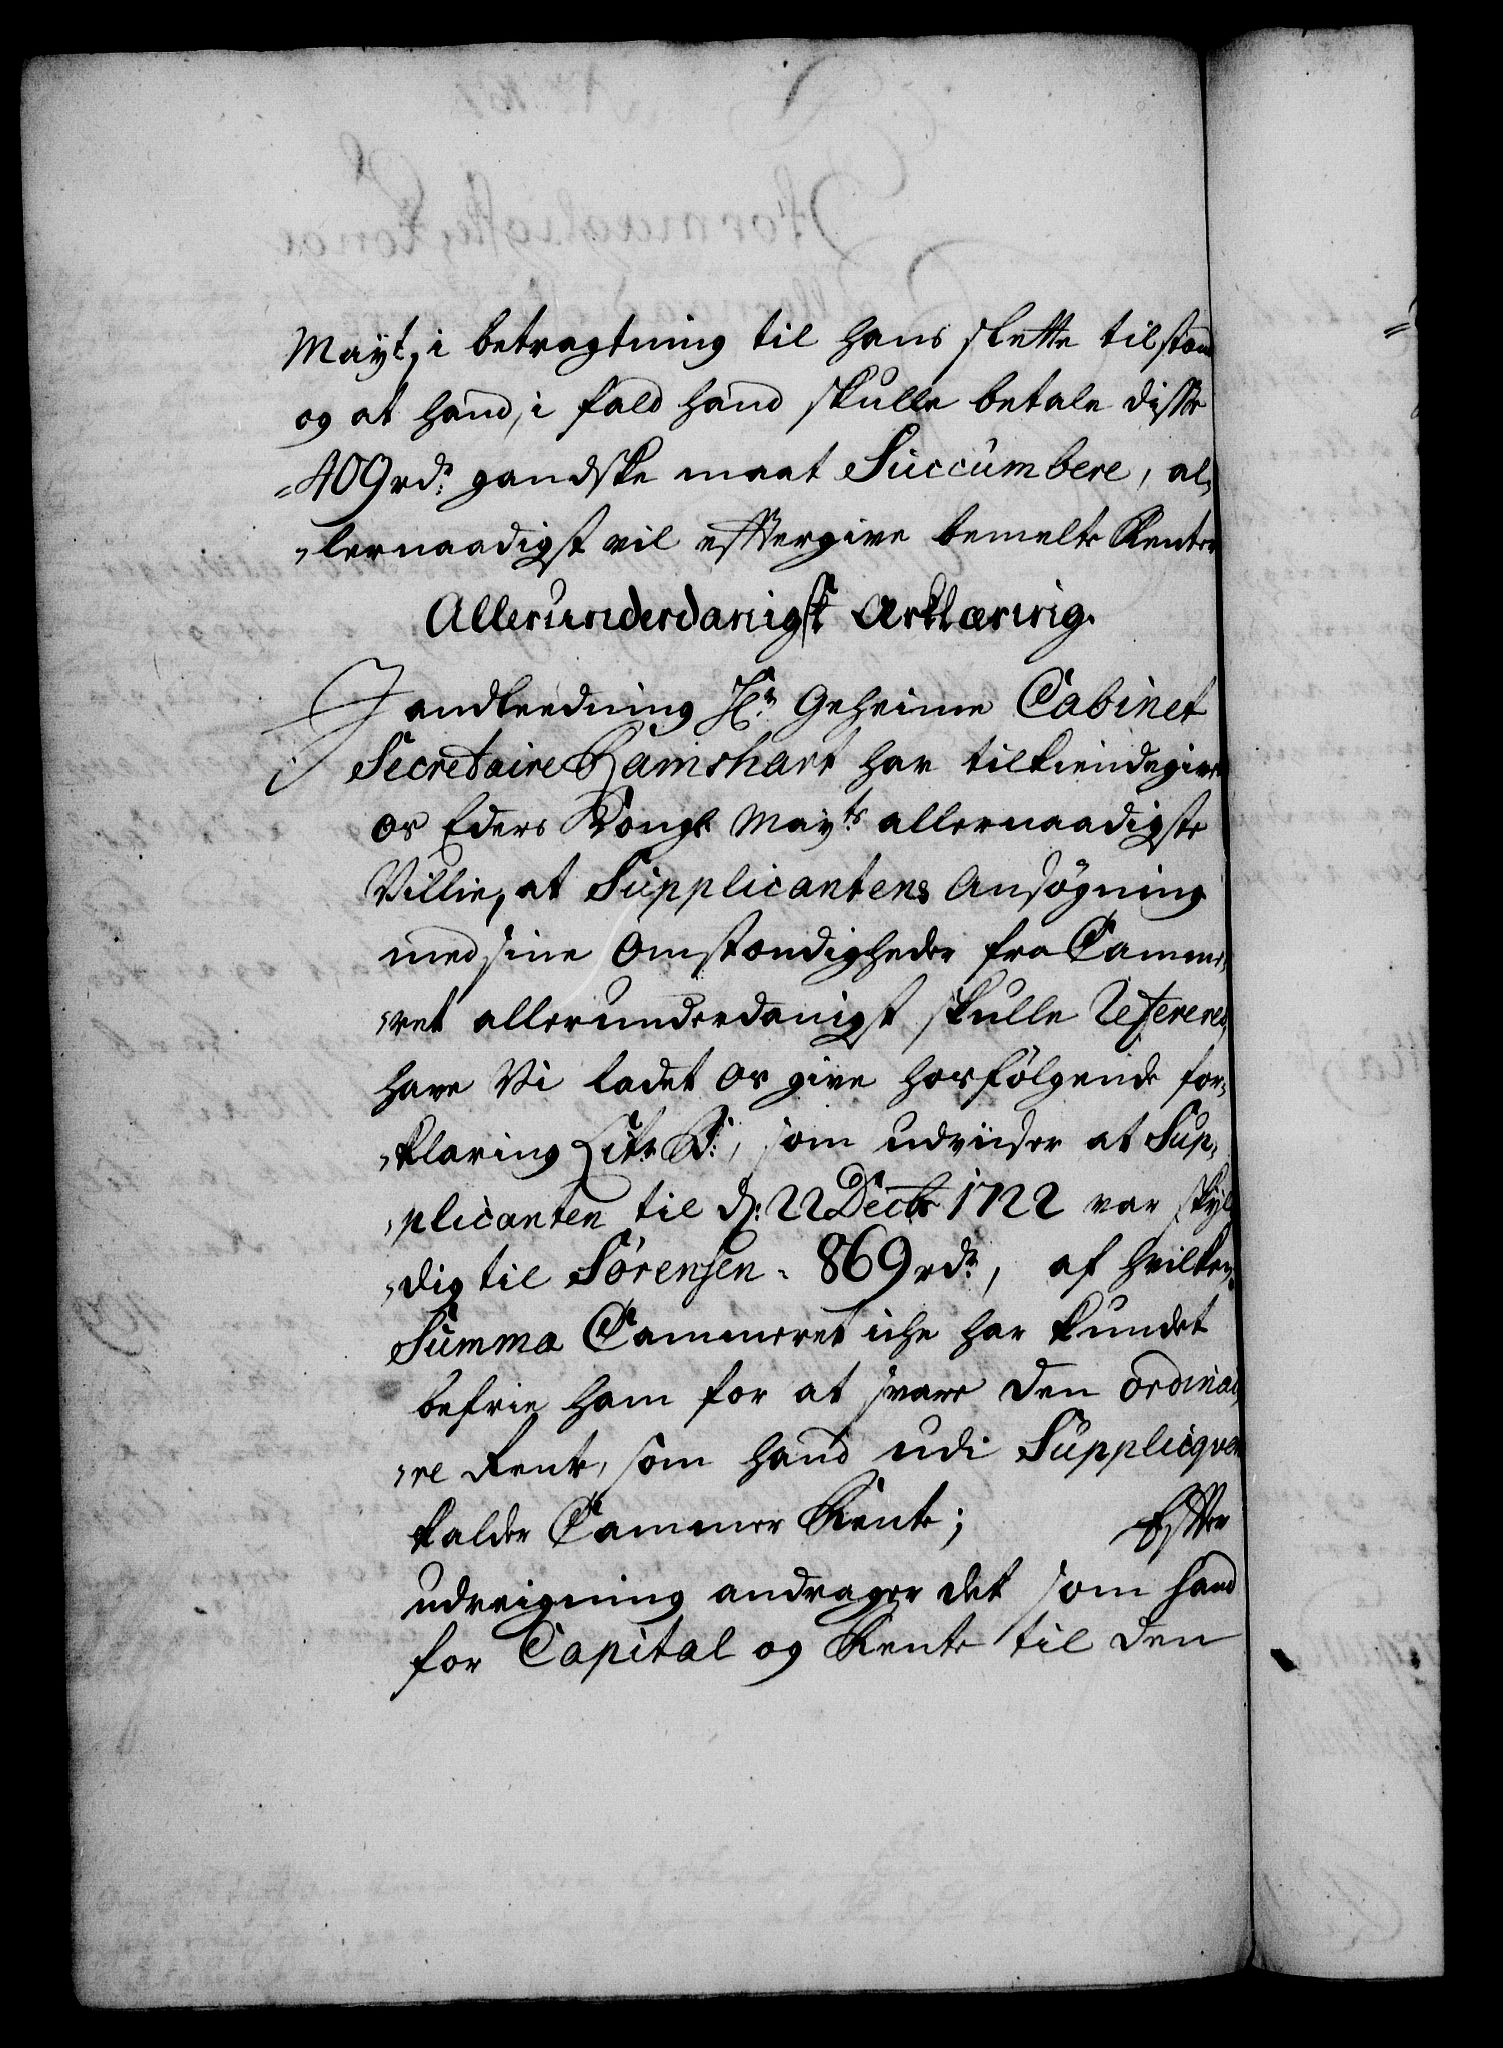 Mayt, i betragtning til hans slette tilstand
og at hand, i fald hand skulle betale disse
409 rdr: gandske maat Succumbere, al,
,lernaadigst vil eftergive bemelte Renter
Allerunderdanigst Ærklæring.
I anledning Hr: Geheime Cabinet
Secretaire Ramshart har tilkiendegivet
os Eders Kongl: Mayts allernaadigste
Villie, at Supplicantens Ansøgning
med sine Omstændigheder fra Camme,
,ret allerunderdanigst skulle Refereres,
have Vi ladet os give hosfølgende for,
,klaring Litr: B:, som udviiser at Sup,
,plicanten til d: 22 Decbr 1722 var skyl,
,dig til Sørensen - 869 rdr:, af hvilken
Summa Cammeret iche har kundet
befrie ham for at svare den ordinai,
,re Rente, som hand udi Suppliqven
kalder Cammer Rente; Efter
udreigning andrager det som hand
for Capital og Rente til den